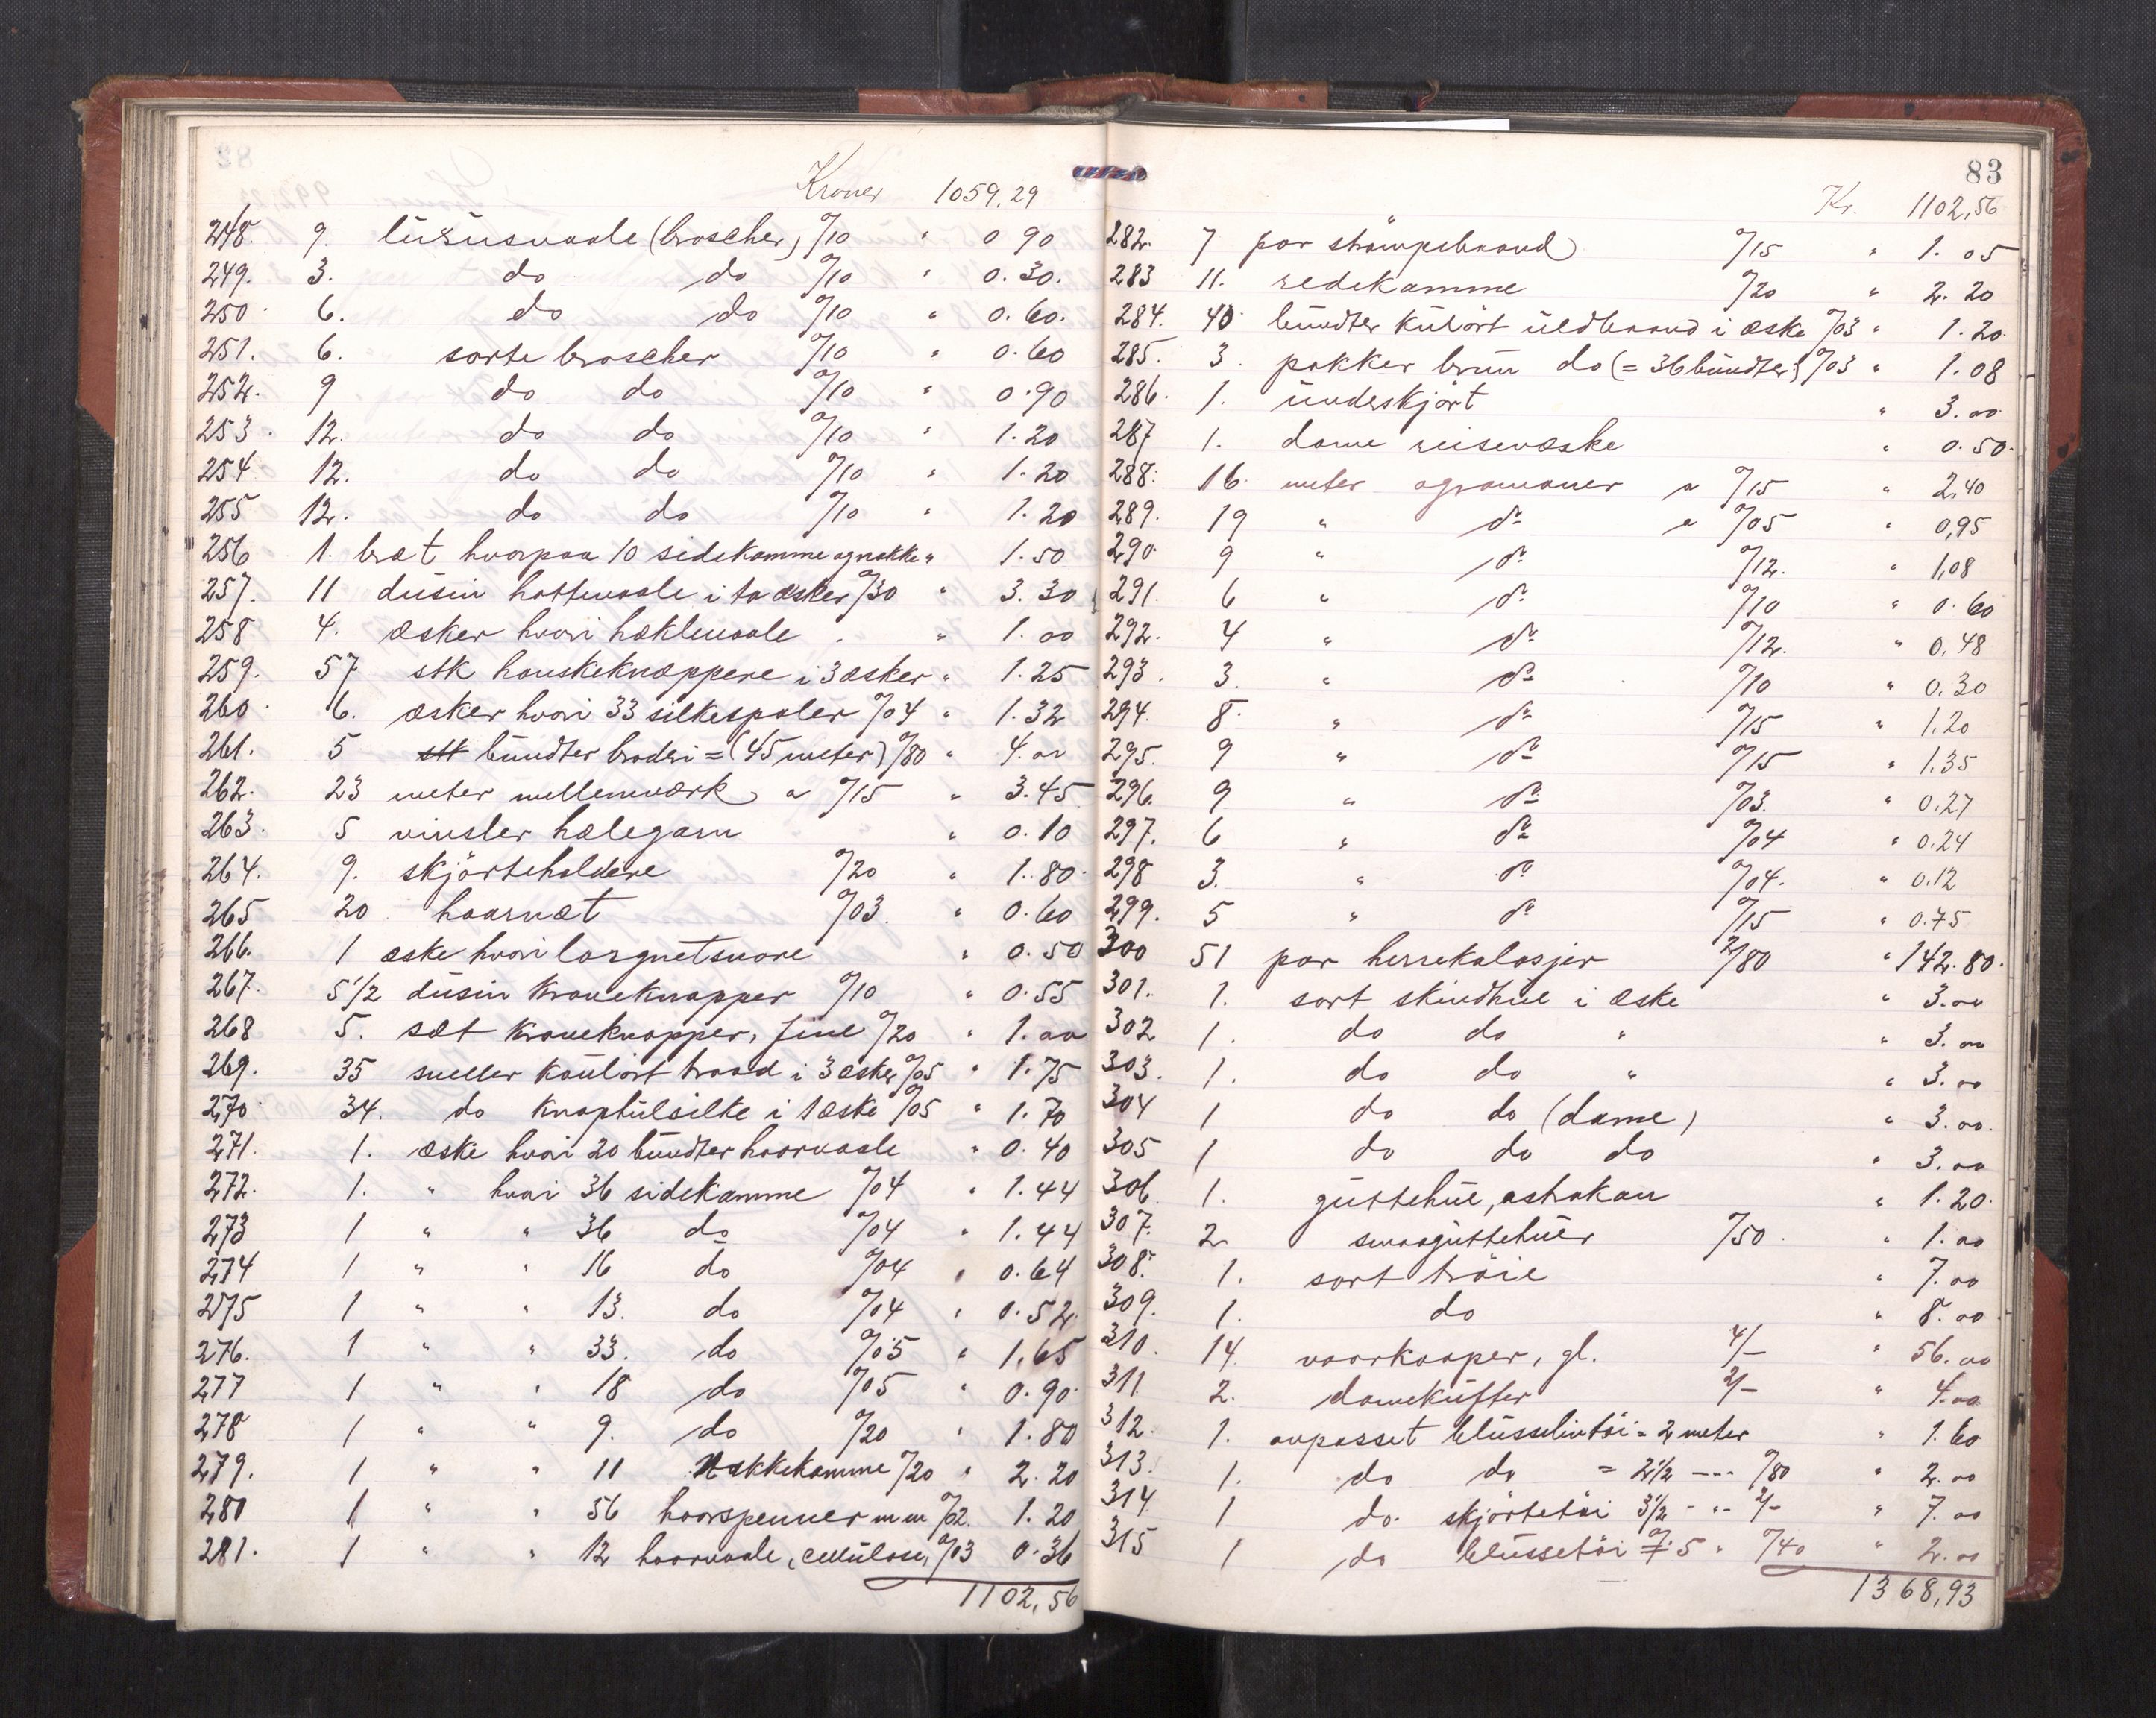 Kroner 1059,29
248. 9. lüxüsnaale (broscher) %10 " 0 90
249. 3. do do %10 " 0.30.
250. 6. do do %10 " 0.60.
251. 6. sorte broscher %10 " 0.60
252. 9 do do %10 " 0.90
253. 12. do do %10 " 1.20
254 12. do do %10 " 1.20
255 12. do do %10 " 1.20
256 1. bræt hvorpaa 10 sidekamme ognakke " 1.50
257. 11 düsin hattenaale i to æsker %30 " 3.30
258 4. æsker hvori hæklenaale . " 1.00
259. 57 stk hanskeknæppere i 3 æsker " 1.25
260. 6. æsker hvori 33 silkespoler %04 " 1.32
261. 5 stk bündter broderi = (45 meter) %80 " 4.00
262. 23 meter mellemværk a %15 " 3.45
263. 5 vinsler hælegarn " 0.10
264. 9. skjörteholdere %20 " 1.80.
265 20 haarnæt %03. " 0.60
266. 1 æske hvori lorgnetsnore " 0.50
267. 5 1/2 düsin kraveknapper %10 " 0.55
268 5. sæt kraveknapper, fine %20 " 1.00
269. 35 sneller koülört traad i 3 æsker %05 " 1.75
270. 34. do knaphülsilke i 1 æske %05 " 1.70
271. 1. æske hvori 20 bündter haarnaale " 0.40
272. 1. " hvori 36 sidekamme %04 " 1.44
273 1 " " 36 do %04 " 1.44
274 1 " " 16 do %04 " 0.64
275 1 " " 13. do %04 " 0.52.
276. 1 " " 33. do %05 " 1,65
277 1 " " 18 do %05 " 0.90.
278 1 " " 9. do %20 " 1.80
279. 1 " " 11 Nakkekamme %20 " 2.20
280 1 " " 56 haarspenner m m %02. 1.20
281. 1 " " 12 haarnaale, cellülose, %03 0.36
1102,56
83
Kr. 1102,56
282. 7 par strömpebaand %15 " 1.05
283 11. redekamme %20 " 2.20
284. 40 bündter külört üldbaand i æske %03 " 1.20.
285. 3. pakker brün do (= 36 bündter) %03 " 1.08
286. 1. ünderskjört " 3.00.
287 1. dame reisevæske " 0.50.
288. 16. meter agramaner a %15 " 2,40
289. 19 " do a %05 " 0,95
290. 9 " do %12. " 1,08
291. 6 " do %10 " 0.60
292. 4 " do %12. " 0,48
293. 3. " do %10 " 0.30
294. 8. " do %15 " 1.20
295. 9 " do %15 " 1.35
296. 9 " do %03. " 0.27
297. 6 " do %04 " 0.24
298 3. " do %04. " 0.12
299. 5 " do %15 " 0.75
300 51 par herrekalosjer 2/80 " 142.80.
301. 1. sort skindhüe i æske " 3.00
302 1. do do " " 3.00
303. 1. do do " " 3.00
304 1 do do (dame) " 3.00.
305 1 do do do " 3.00
306. 1. güttehüe, astrakan " 1.20.
307. 2 smaagüttehüer %50. " 1.00
308. 1. sort tröie " 7.00
309. 1. do " 8.00
310. 14. vaarkaaper, gl. 4/- " 56.00
311. 2. dameküfter 2/- " 4.00
312. 1. avpasset blüsselintöi = 2 meter " 1.60
313. 1. do do = 2 1/2 --- %80 " 2.00
314 1 do. skjörtetöi 3 1/2 - " - 2/- " 7.00
315 1 do blüssetöi 7. 5 " %40 " 2.00
1368,93